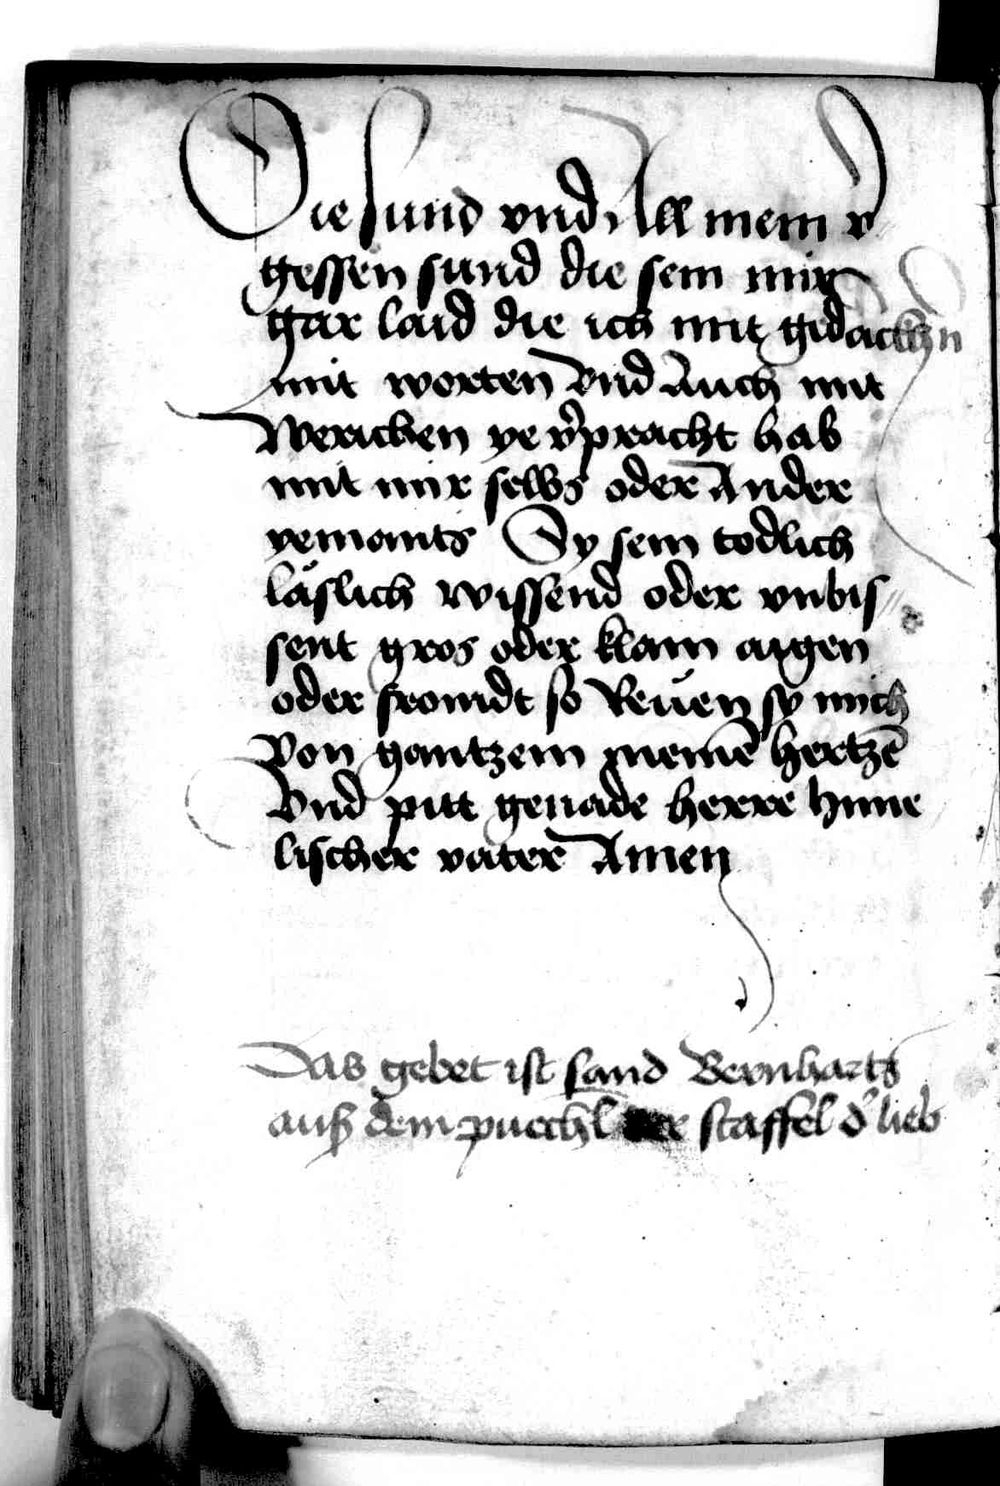 Die sund vnd All mein v̄
gessen sund die sein mir
gar laid die ich mit gedachtn̄
mit worten vnd Auch mit
Werichen ye v̄pracht hab
mit mir selbs oder Ander
yemants Sy sein todlich
läslich wissend oder vnbis
sent gros oder klain aigen
oder fromdt so Reuen sy mich
Von gantzem meinē hertzē
Vnd pitt genade herre hime
lischer vater Amen
Das gebet ist sand Bernharts
auß dem puechl der staffel d' lieb